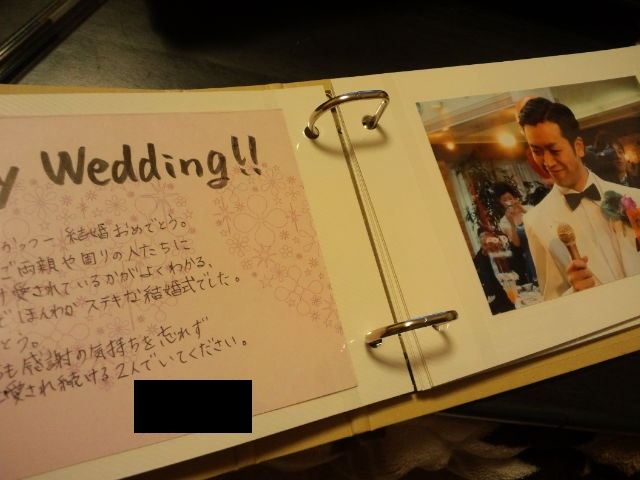 y Wedding!!
結婚おめでとう。
ご両親や周りの人たちに
愛されているかがよくわかる、
ほんわかステキな結婚式でした。
とう。
も感謝の気持ちを忘れず
愛され続ける2人でいてください。